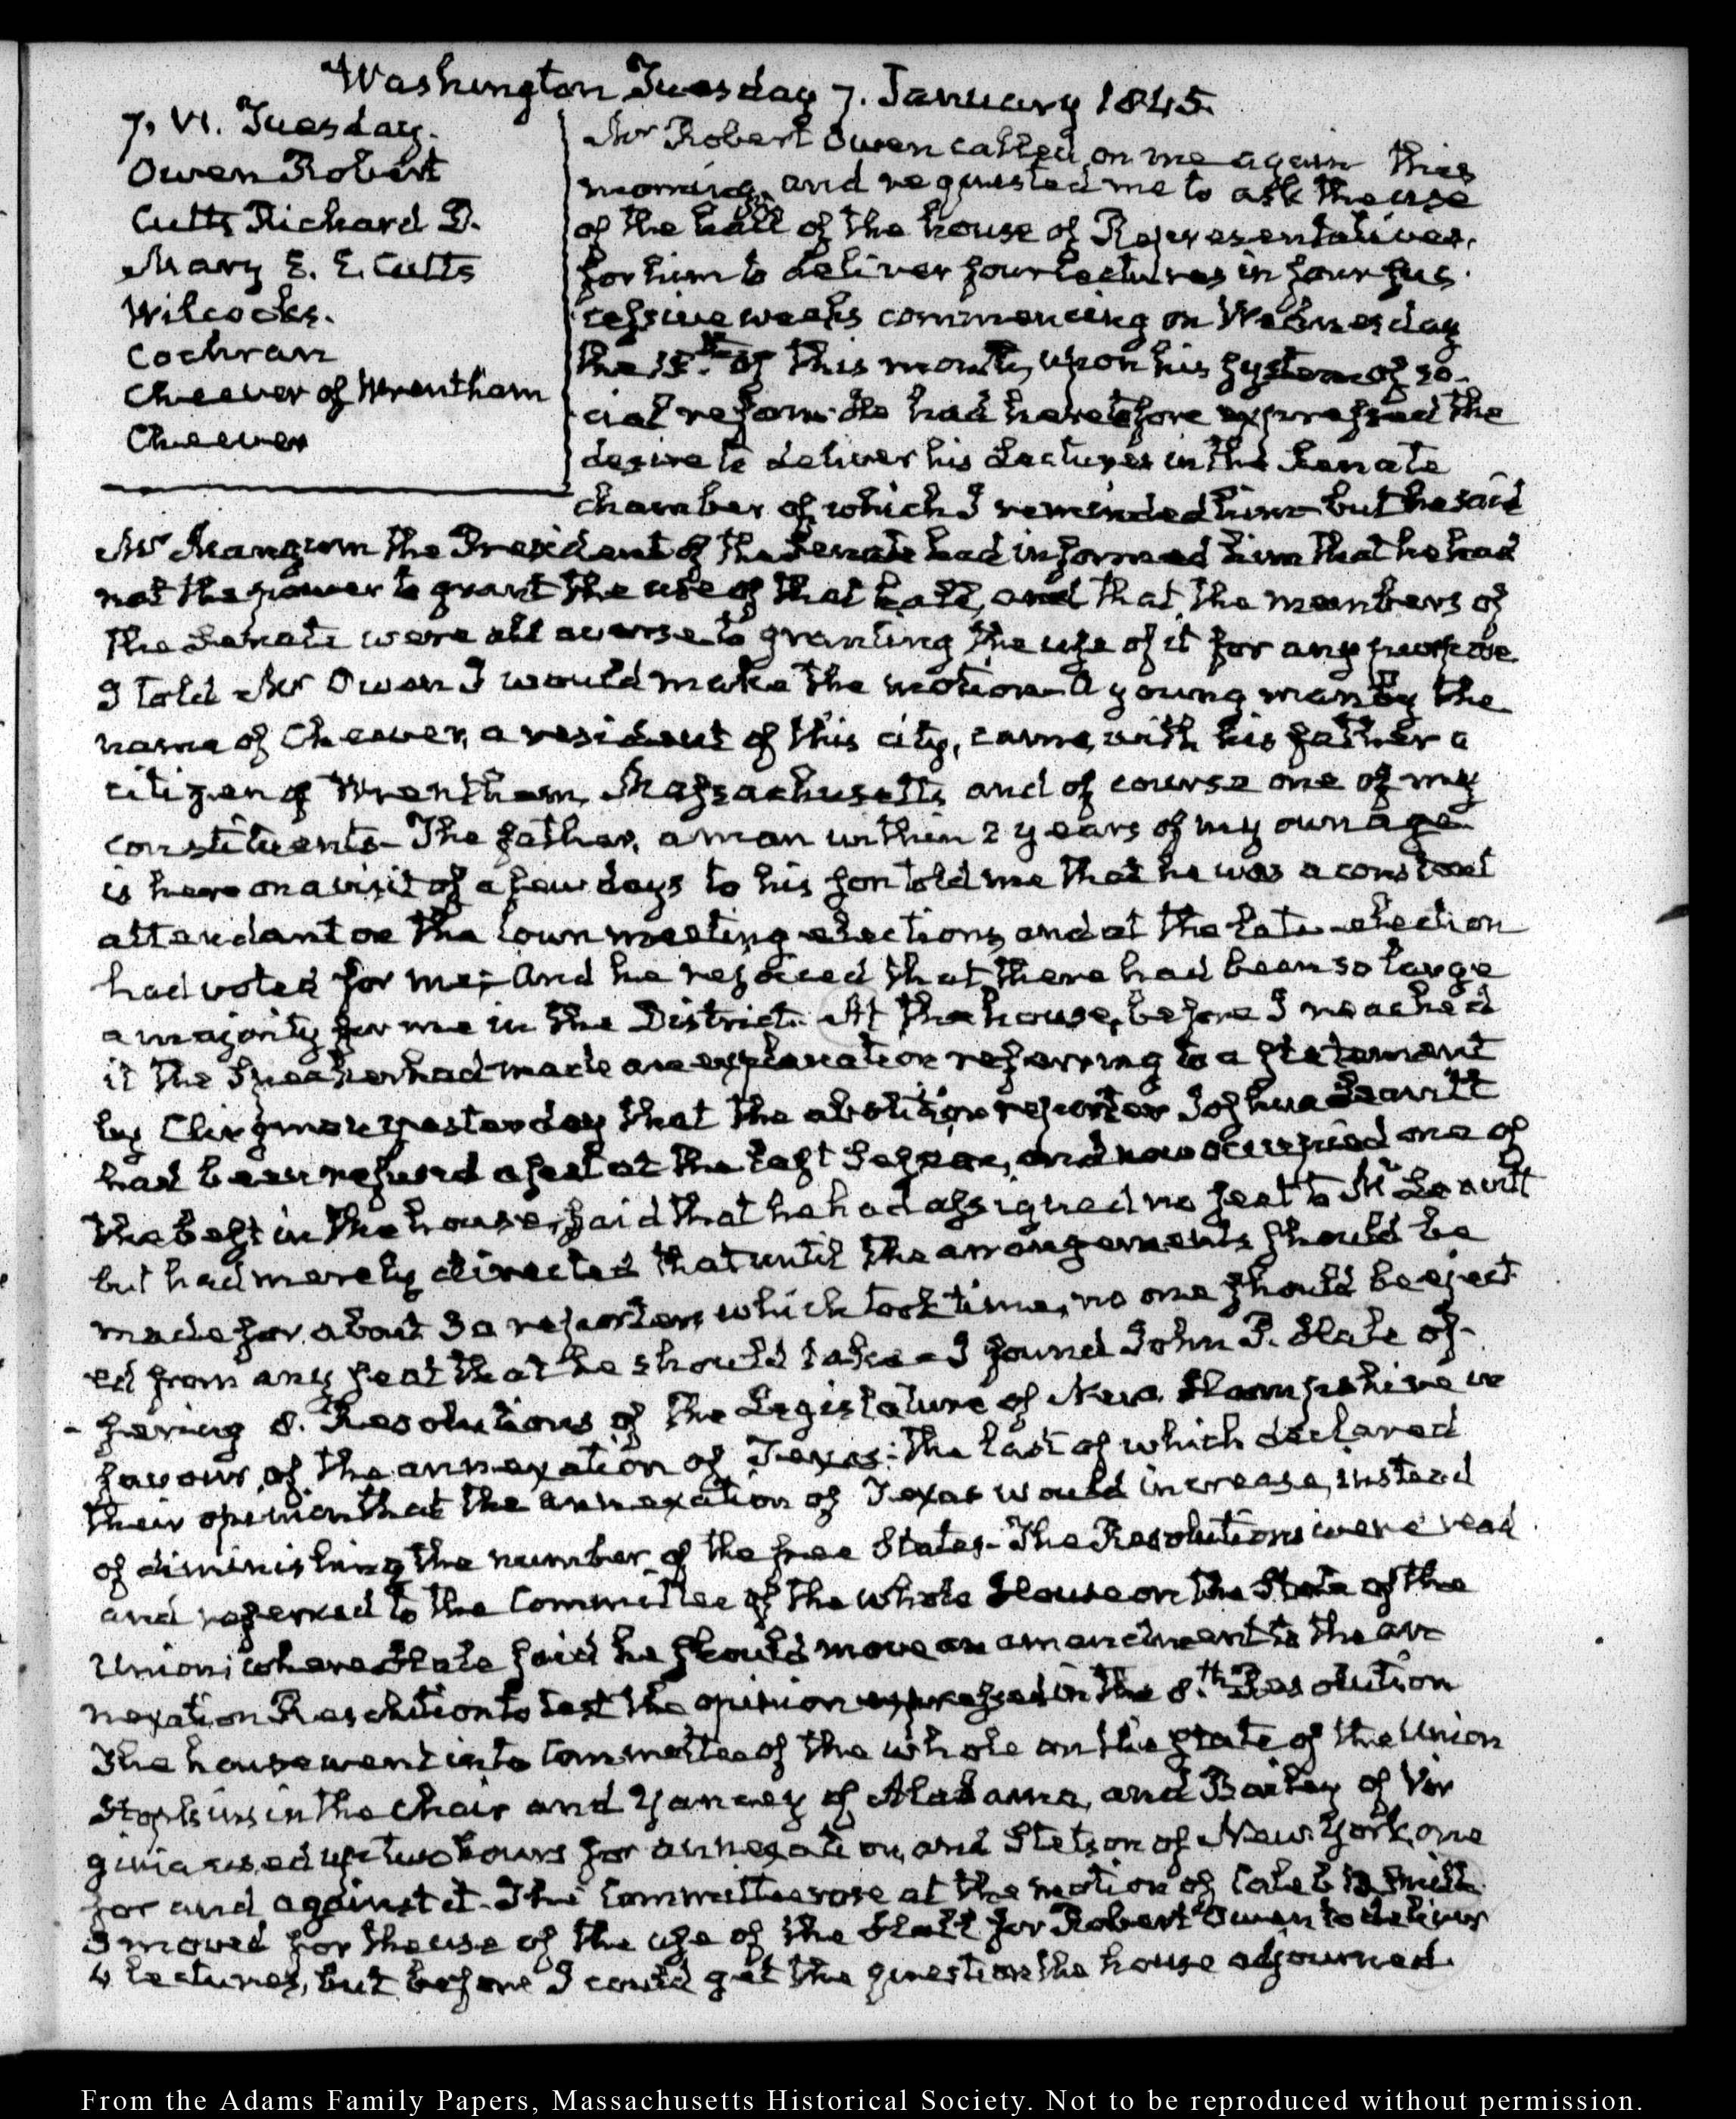 Washington Tuesday 7. January 1845.
7. VI. Tuesday.
Owen Robert
Cutts Richard D.
Mary E. E. Cutts
Wilcocks.
Cochran
Cheever of Wrentham
Cheever
Mr Robert Owen called on me again this
morning, and requested me to ask the use
of the hall of the house of Representatives,
for him to deliver four lectures in four suc-
cessive weeks commencing on Wednesday
the 15th of this month, upon his system of so-
cial reform. He had heretofore expressed the
desire to deliver his Lectures in the Senate
chamber of which I reminded him but he said
Mr Mangum the President of the Senate had informed him that he had
not the power to grant the use of that hall, and that the members of
the Senate were all averse to granting the use of it for any purpose
I told Mr Owen I would make the motion— A young man by the
name of Cheever, a resident of this city, came with his father a
citizen of Wrentham, Massachusetts, and of course one of my
constituents— The father, a man within 2 years of my own age
is here on a visit of a few days to his son told me that he was a constant
attendant on the town meeting elections, and at the late election
had voted for me; and he rejoiced that there had been so large
a majority for me in the District. At the house, before I reached
it the Speaker had made an explanation referring to a statement
by Clingman yesterday that the abolition reporter Joshua Leavitt
had been refused a seat at the last Session, and now occupied one of
the best in the house, said that he had assigned no seat to Mr Leavitt
but had merely directed that until the arrangements should be
made for about 30 reporters which took time, no one should be eject
ed from any seat that he should take— I found John P. Hale of-
fering 8. Resolutions of the Legislature of New Hampshire in
favour, of the annexation of Texas: the last of which declared
their opinion that the annexation of Texas would increase, instead
of diminishing the number of the free States— The Resolutions were read
and referred to the Committee of the whole House on the State of the
Union; where Hale said he should move an amendment to the an-
nexation Resolution to test the opinion expressed in the 8.th Resolution
The house went into Committee of the whole on the state of the Union
Hopkins in the chair and Yancey of Alabama, and Bailey of Vir
ginia used up two hours for annexation, and Stetson of New York, one
for and against it. The Committee rose at the motion of Caleb B. Smith.
I moved for the use of the use of the Hall for Robert Owen to deliver
4 lectures, but before I could get the question the house adjourned.
From the Adams Family Papers, Massachusetts Historical Society. Not to be reproduced without permission.